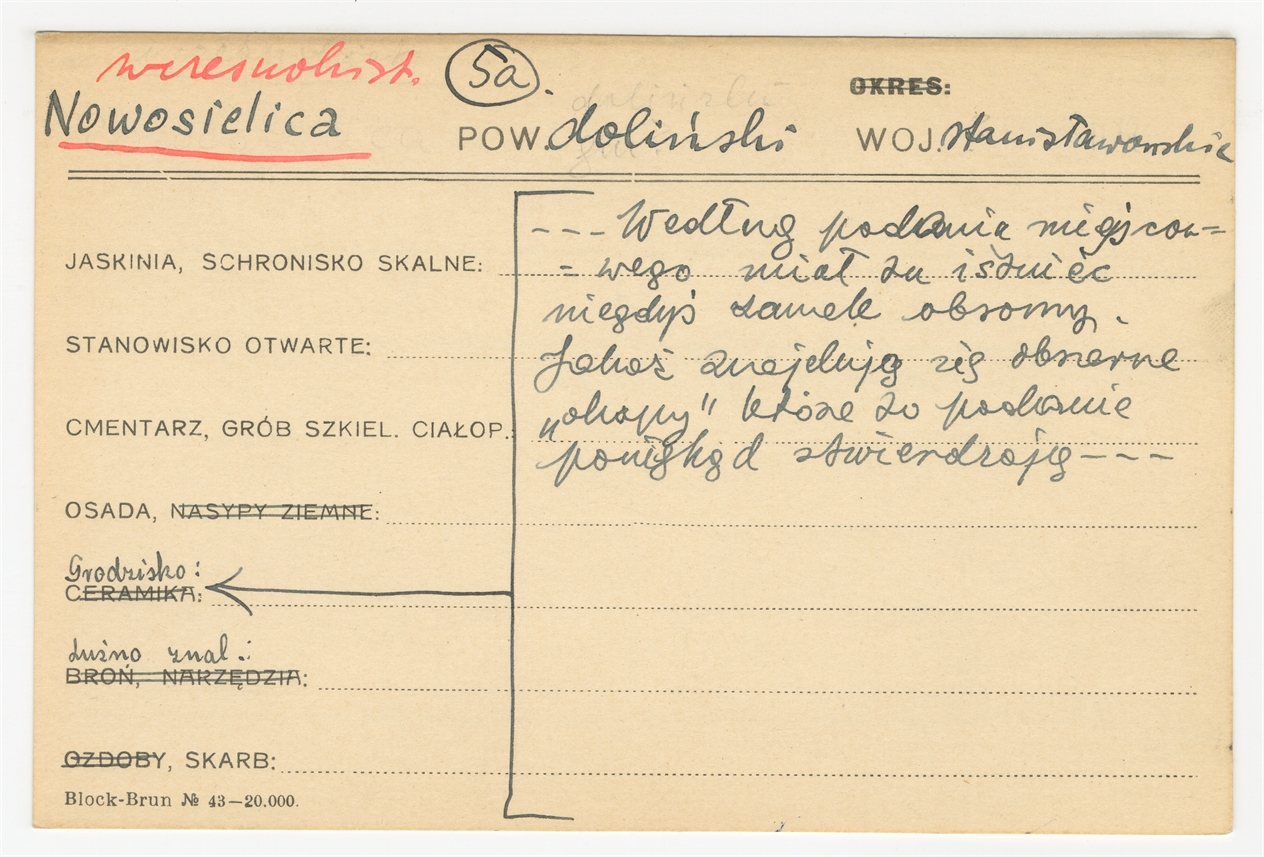 wczesnohist. 5a.
Nowosielica
POW. doliński
OKRES:
WOJ. stanisławowskie
--- Według podania miejsco=
= wego miał tu istnieć
niegdyś zamek obronny.
Jakoż znajdują się obszerne
„okopy" które to podanie
poniękąd stwierdzają ---
JASKINIA, SCHRONISKO SKALNE:
STANOWISKO OTWARTE:
CMENTARZ, GRÓB SZKIEL. CIAŁOP.
OSADA, NASYPY ZIEMNE:
Grodzisko:
CERAMIKA:
Luźno znal.:
BROŃ, NARZĘDZIA:
OZDOBY, SKARB:
Block-Brun № 43—20.000.